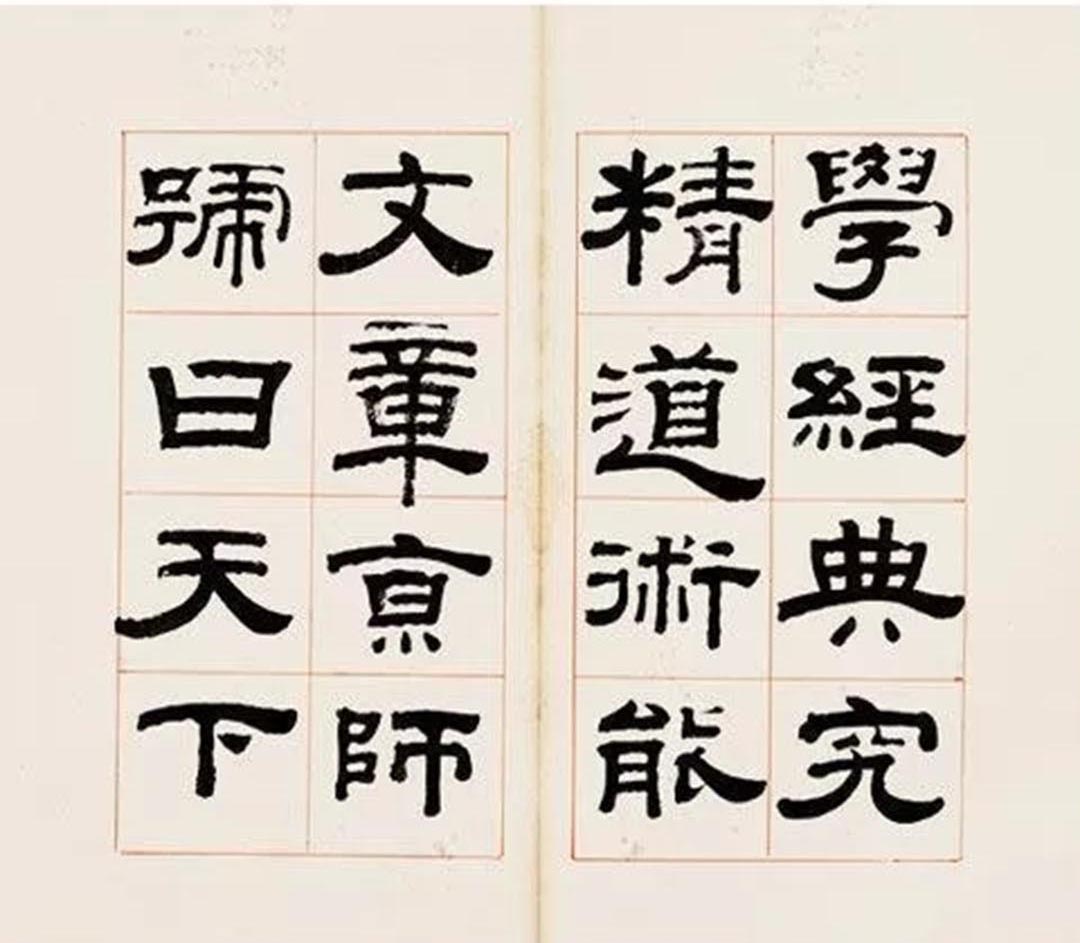 學經典究
精道術能
文章京師
號曰天下